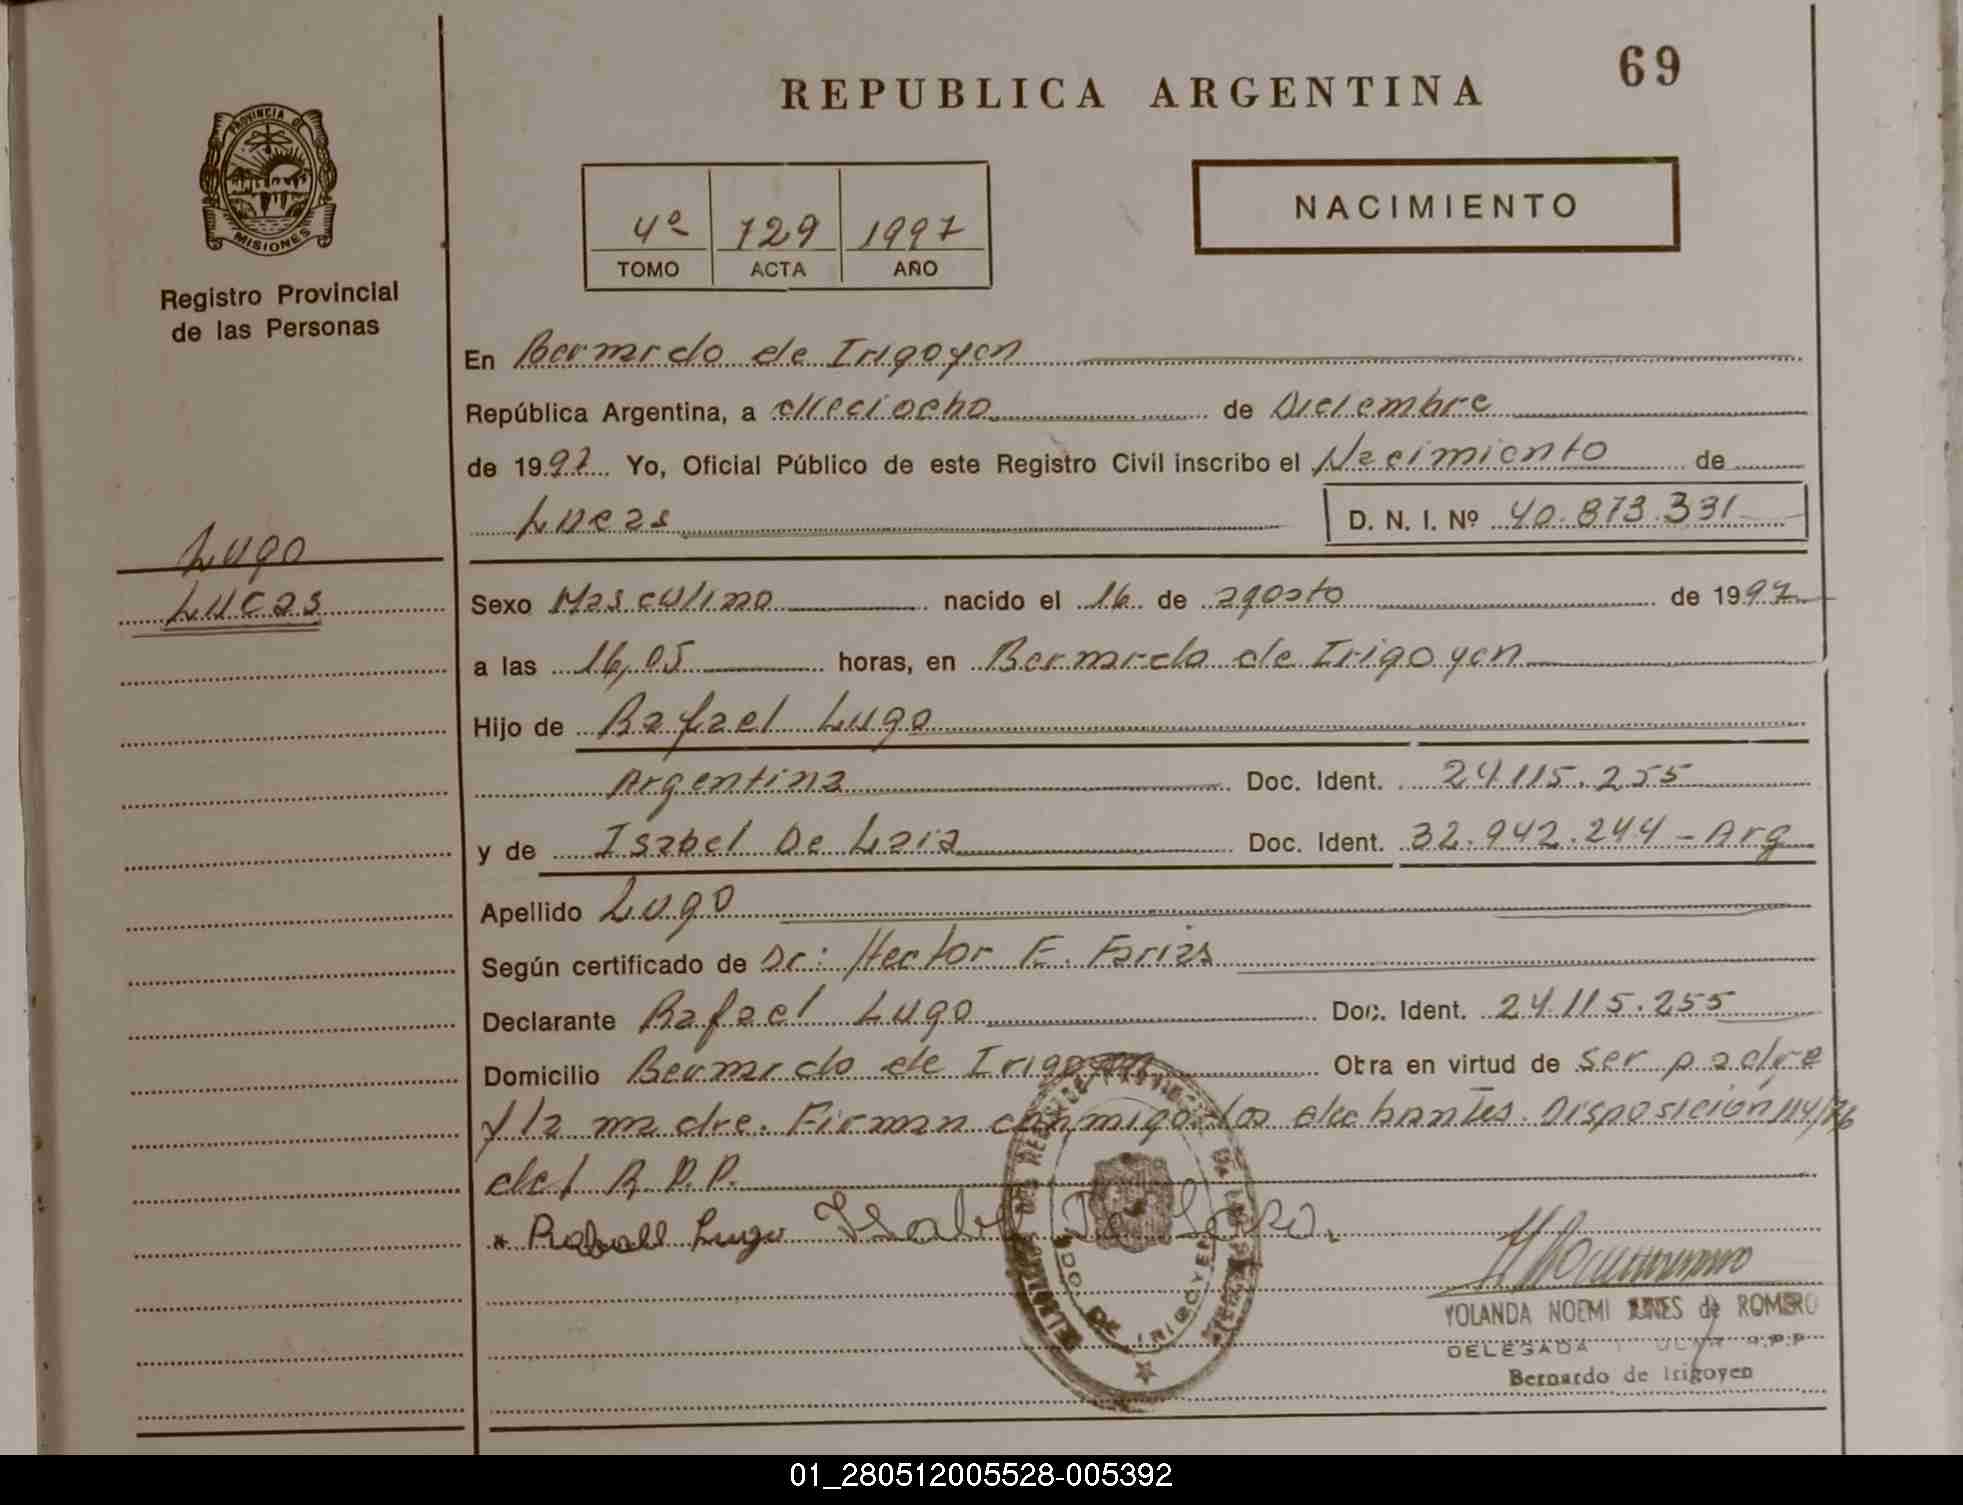 69
REPUBLICA ARGENTINA
PROVINCIA DE
MISIONES
Registro Provincial
de las Personas
4º 729 1997
TOMO ACTA AÑO
NACIMIENTO
En Bernardo de Irigoyen
República Argentina, a dieciocho de Diciembre
de 1997 Yo, Oficial Público de este Registro Civil inscribo el Nacimiento de
Lucas D. N. I. Nº 40.873.331
Lugo
Lucas
Sexo Masculino nacido el 16 de agosto de 1997
a las 16,05 horas, en Bernardo de Irigoyen
Hijo de Rafael Lugo
Argentina Doc. Ident. 24.115.255
y de Isabel De Lara Doc. Ident. 32.942.244 - Arg
Apellido Lugo
Según certificado de Dr: Hector E. Farias
Declarante Rafael Lugo Doc. Ident. 24.115.255
Domicilio Bernardo de Irigoyen Obra en virtud de ser padre
y la madre. Firman conmigo los Disposición
del R.P.P.
Lugo Isabel De Lara
DE IRIGOYEN
YOLANDA NOEMI de ROMERO
DELEGADA R.P.P
Bernardo de Irigoyen
01_280512005528-005392